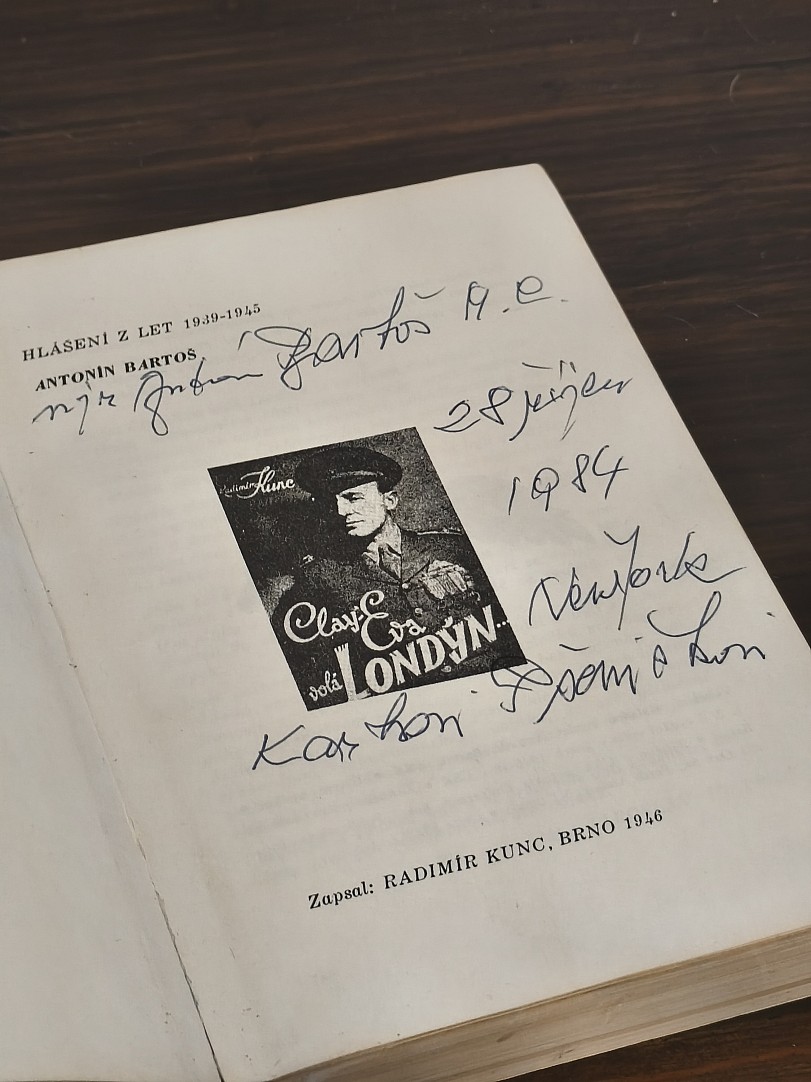 HLÁŠENÍ Z LET 1939-1945
ANTONÍN BARTOŠ
mjr Antonín Bartoš
28 říjen
1984
New York
Radimír Kunc
Clay-Eva
volá LONDÝN...
Zapsal: RADIMÍR KUNC, BRNO 1946